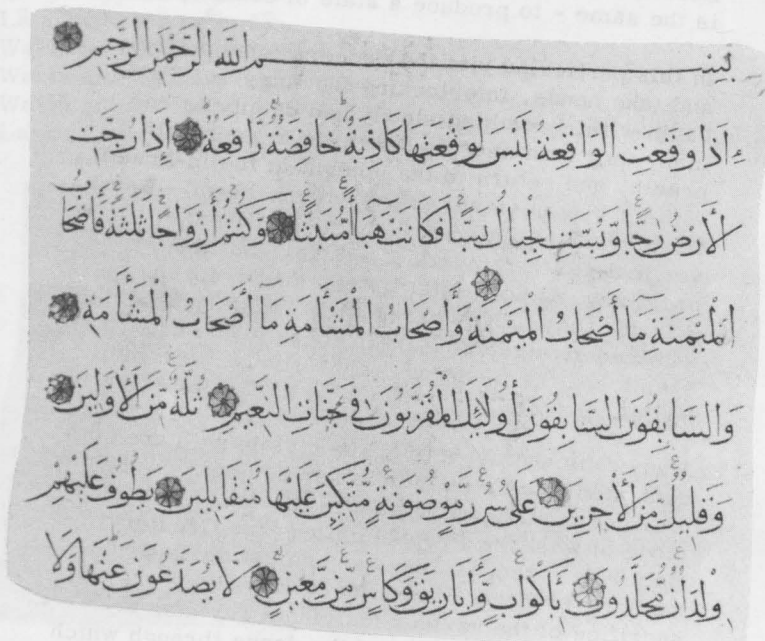 بسم الله الرحمن الرحيم
إذا وقعت الواقعة ليس لوقعتها كاذبة خافضة رافعة إذا رجت
الأرض رجا وبست الجبال بسا فكانت هبآء منبثا وكنتم أزواجا ثلثة فأصحاب
الميمنة مآ أصحاب الميمنة وأصحاب المشأمة مآ أصحاب المشأمة
والسابقون السابقون أولئك المقربون في جنات النعيم ثلة من الأولين
وقليل من الأخرين على سرر موضونة متكئين عليها متقابلين يطوف عليهم
ولدان مخلدون بأكواب وأباريق وكأس من معين لا يصدعون عنها ولا